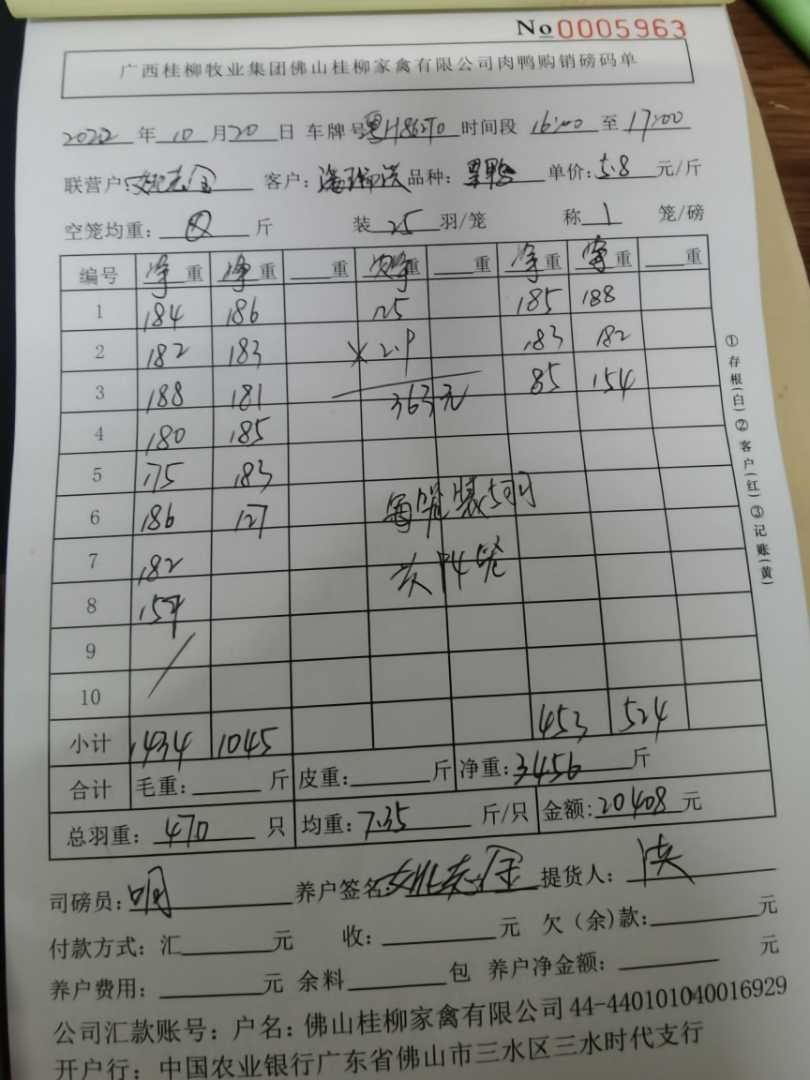 No 0005963
广西桂柳牧业集团佛山桂柳家禽有限公司肉鸭购销磅码单
2022 年 10 月 20 日 车牌号 粤H862T0 时间段 16:00 至 17:00
联营户: 姚志金 客户: 品种: 单价: 5.8 元/斤
空笼均重: 斤 装 25 羽/笼 称 1 笼/磅
编号 净重 净重 重 重 重 净重 重 重
1 184 186 125 185 188
2 182 183 × 2.9 183 182
3 188 181 363元 85 154
4 180 185
5 175 183
6 186 127 每笼装5羽
7 182
8 154
9
10
小计 1434 1045 453 524
合计 毛重: 斤 皮重: 斤 净重: 3456 斤
总羽重: 470 只 均重: 7.35 斤/只 金额: 20408 元
司磅员: 明 养户签名 姚志金 提货人:
付款方式: 汇 元 收: 元 欠(余)款: 元
养户费用: 元 余料 包 养户净金额: 元
公司汇款账号: 户名: 佛山桂柳家禽有限公司 44-440101040016929
开户行: 中国农业银行广东省佛山市三水区三水时代支行
①存根(白)②客户(红)③记账(黄)